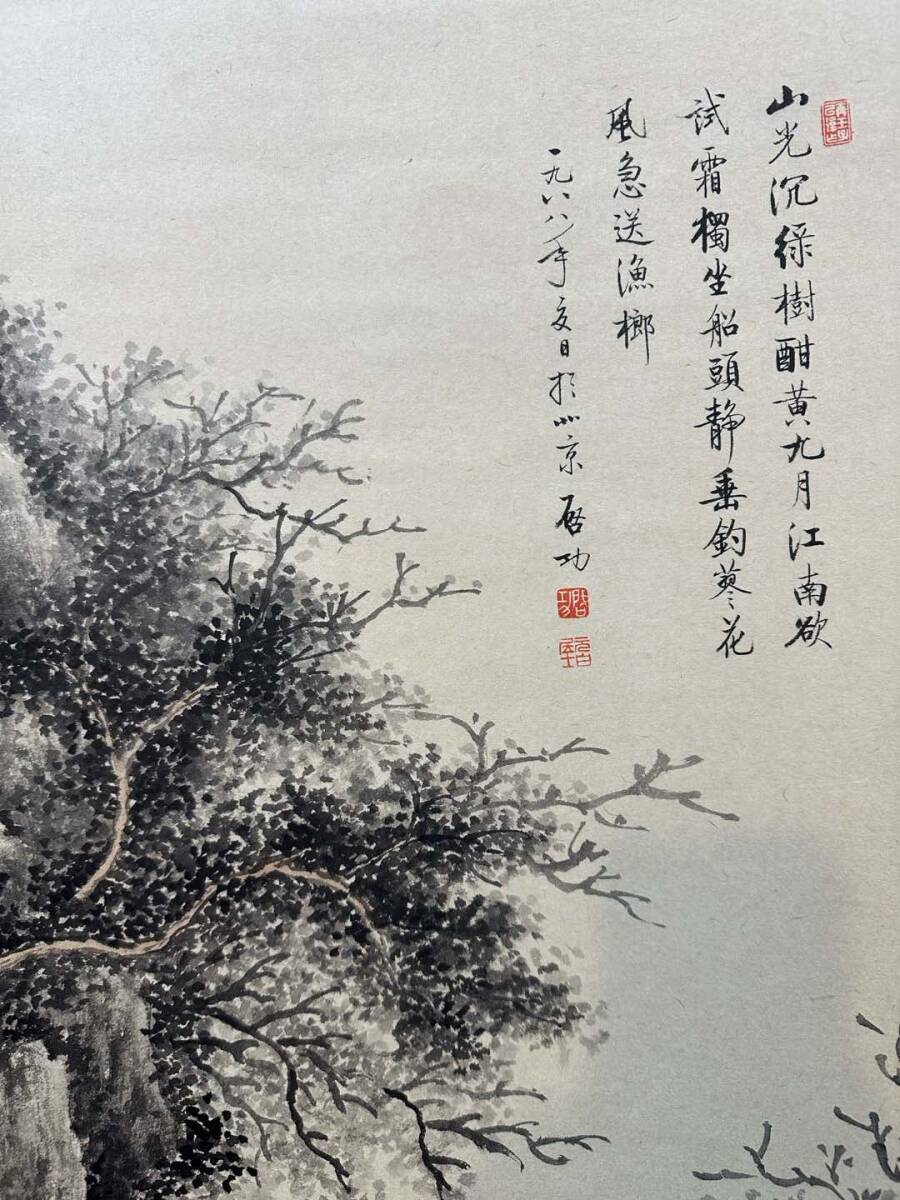 山光沉緑樹酣黃九月江南欲
試霜獨坐船頭靜垂釣蓼花
風急送漁榔
一九八八年夏日於北京 啓功
啓功